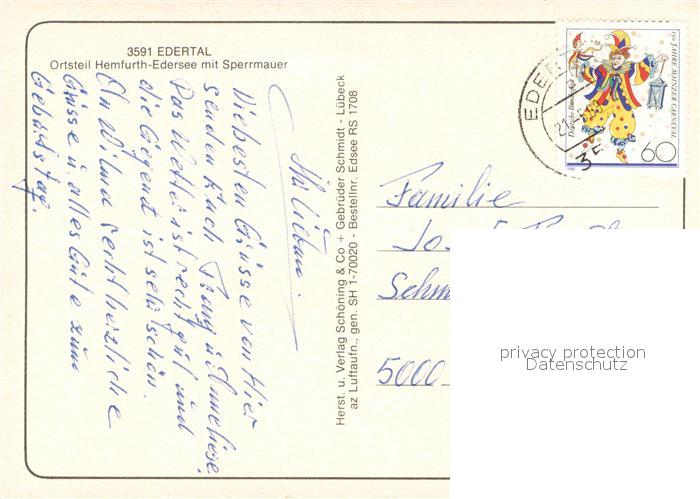 3591 EDERTAL
Ortsteil Hemfurth-Edersee mit Sperrmauer
Ihr Lieben.
Die besten Grüsse von Hier
senden Euch Franz u. Anneliese.
Das Wetter ist recht gut und
die Gegend ist sehr schön.
An Wilma recht herzliche
Grüsse u. alles Gute zum
Geburtstag.
Herst. u. Verlag Schöning & Co + Gebrüder Schmidt - Lübeck
az Luftaufn., gen. SH 1-70020 - Bestellnr. Edsee RS 1708
150 JAHRE MAINZER CARNEVAL
Deutsche Bundespost
60
EDE
Familie
Jos
Schm
5000
privacy protection
Datenschutz